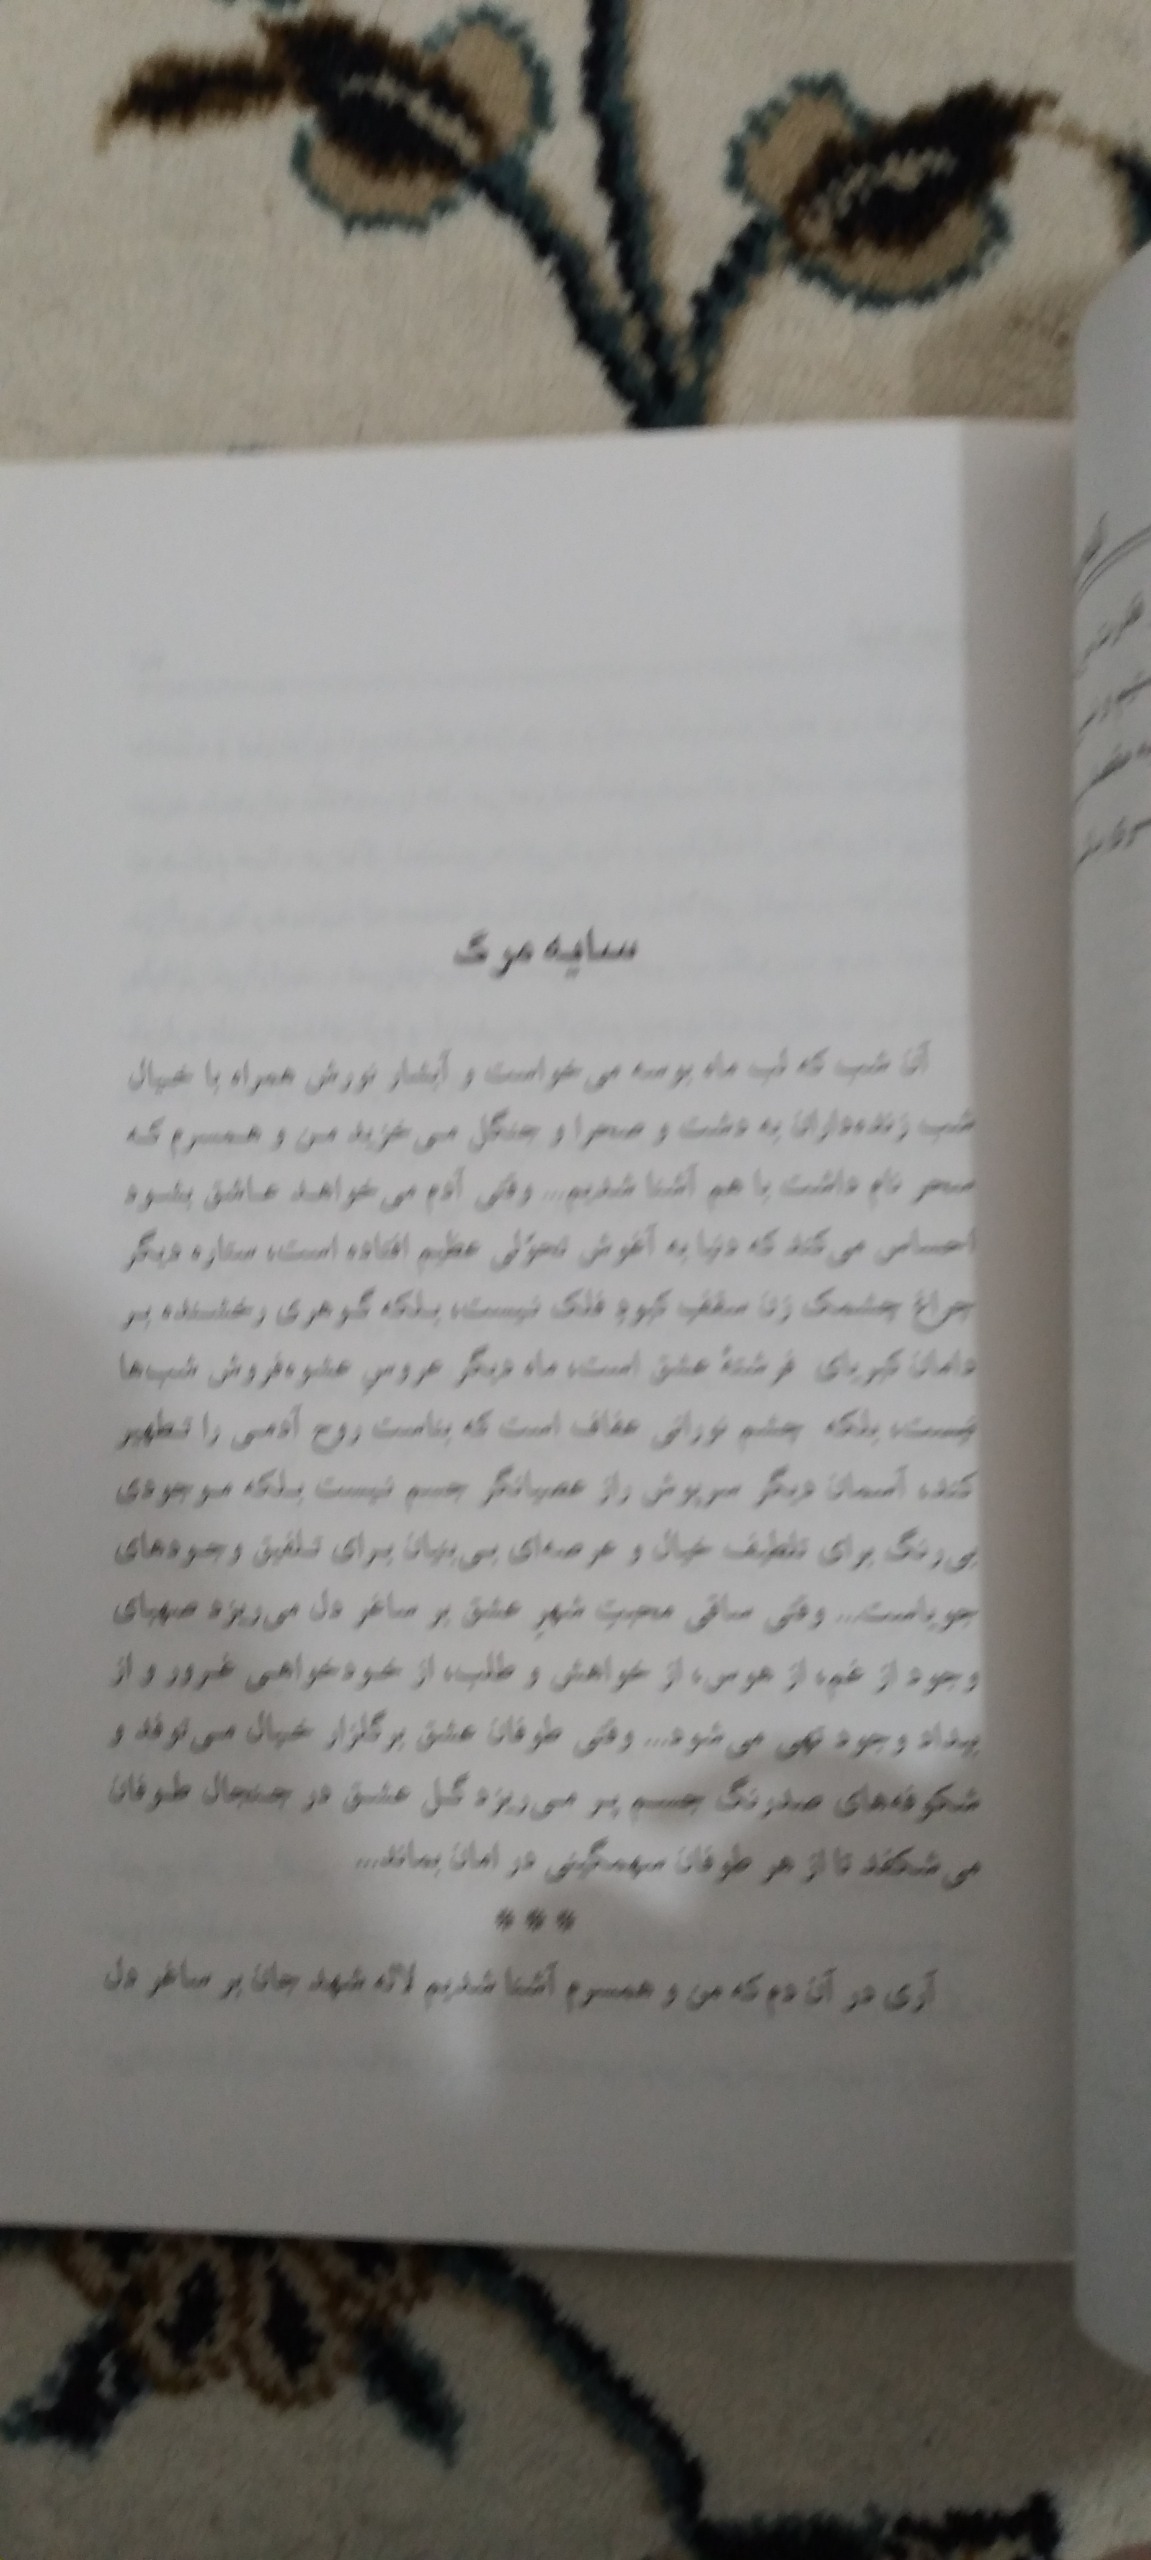 سایه مرگ
آن شب که لب ماه بوسه می‌خواست و آبشار نورش همراه با خیال
شب زنده‌داران به دشت و صحرا و جنگل می‌خزید من و همسرم که
سحر نام داشت با هم آشنا شدیم... وقتی آدم می‌خواهد عاشق بشود
احساس می‌کند که دنیا به آغوش تحوّلی عظیم افتاده است، ستاره دیگر
چراغ چشمک زن سقف کبود فلک نیست، بلکه گوهری رخشنده بر
دامان کبریای فرشتهٔ عشق است، ماه دیگر عروس عشوه‌فروش شب‌ها
نیست، بلکه چشم نورانی عفاف است که روح آدمی را تطهیر
کند، آسمان دیگر سرپوش راز عصیانگر جسم نیست بلکه موجودی
بی‌رنگ برای تلطیف خیال و عرصه‌ای بی‌بنیان برای تلفیق وجودهای
جویاست... وقتی ساقی محبت شهرِ عشق بر ساغر دل می‌ریزد صهبای
وجود از غم، از هوس، از خواهش و طلب، از خودخواهی غرور و از
بیداد وجود تهی می‌شود... وقتی طوفان عشق بر گلزار خیال می‌توفد و
شکوفه‌های صدرنگ جسم پر می‌ریزد گل عشق در جنجال طوفان
می‌شکفد تا از هر طوفان سهمگینی در امان بماند...
***
آری در آن دم که من و همسرم آشنا شدیم لاله شهد جان بر ساغر دل